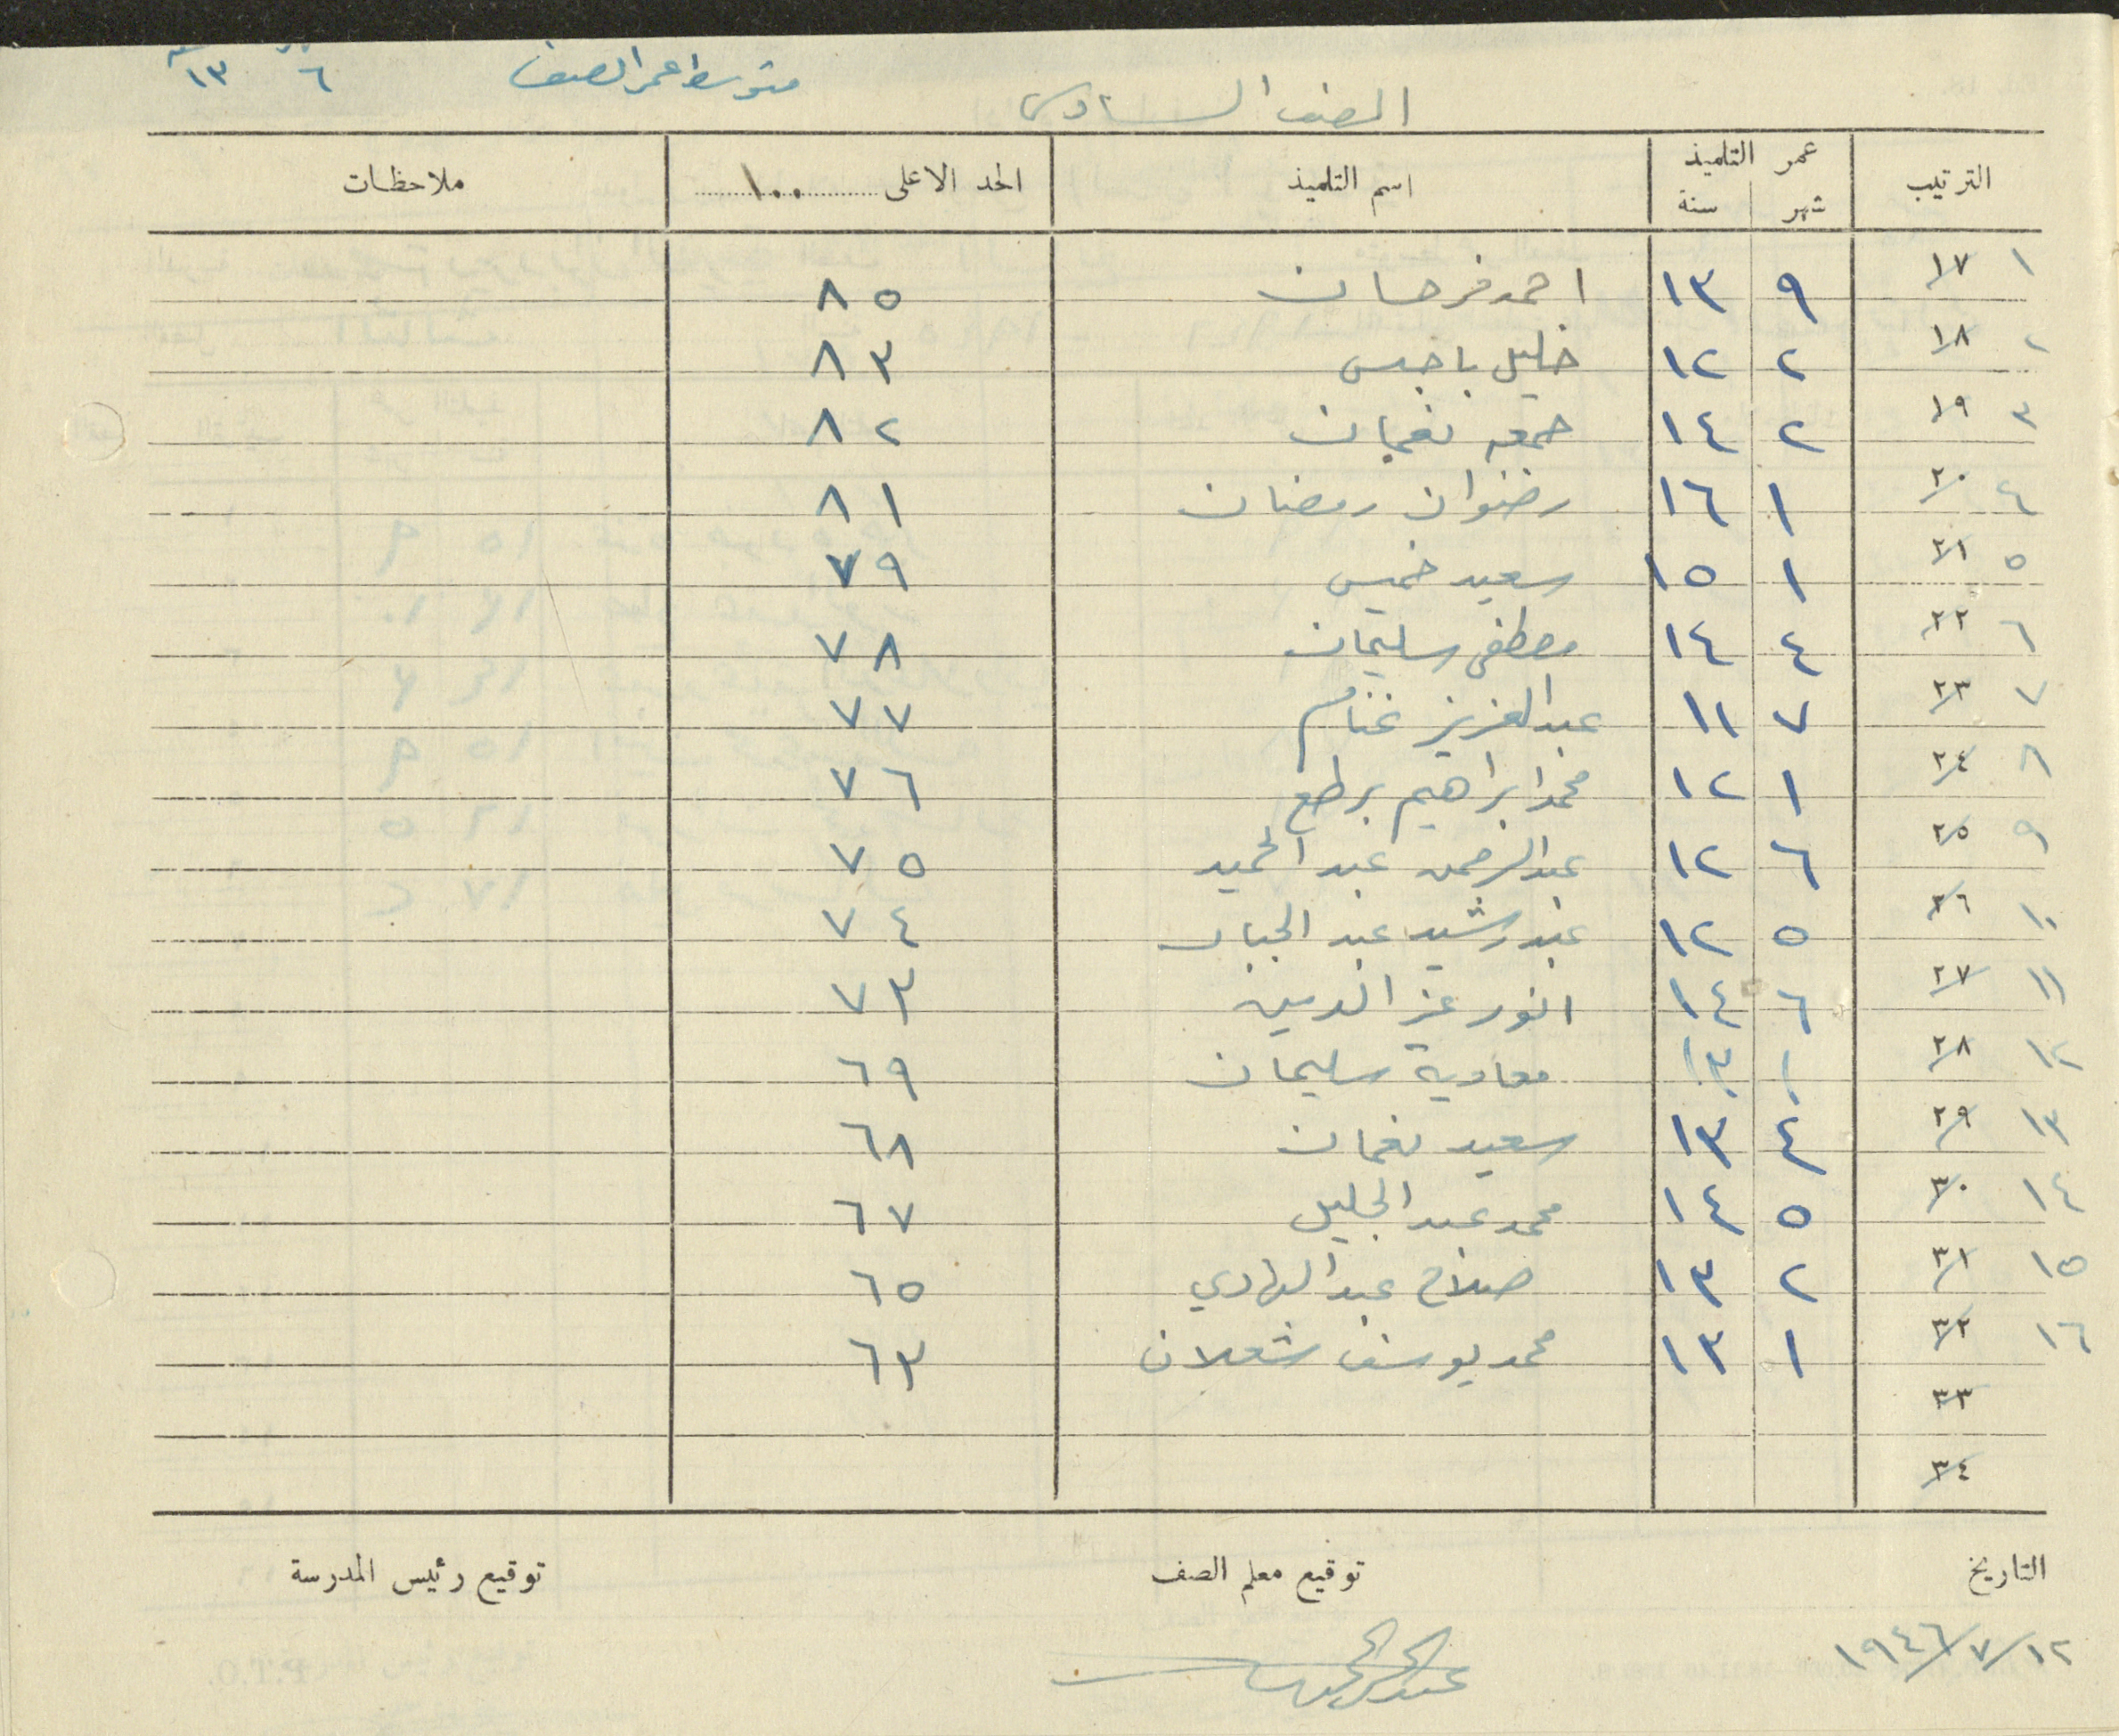 متوسط عمر الصف ٦ ١٣
الصف السادس
الترتيب عمر التلميذ اسم التلميذ الحد الاعلى ١٠٠ ملاحظات
شهر سنة
١ ١٧ ٩ ١٣ احمد فرحان ٨٥
٢ ١٨ ٢ ١٢ خليل باجس ٨٣
٣ ١٩ ٢ ١٤ جمعه نعمان ٨٢
٤ ٢٠ ١ ١٦ رضوان رمضان ٨١
٥ ٢١ ١ ١٥ سعيد خميس ٧٩
٦ ٢٢ ٤ ١٤ مصطفى سليمان ٧٨
٧ ٢٣ ٧ ١١ عبد العزيز غنام ٧٧
٨ ٢٤ ١ ١٢ محمد ابراهيم برطع ٧٦
٩ ٢٥ ٦ ١٢ عبد الرحمن عبد الحميد ٧٥
١٠ ٢٦ ٥ ١٢ عبد رشيد عبد الجبار ٧٤
١١ ٢٧ ٦ ١٤ انور عز الدين ٧٣
١٢ ٢٨ ١ ١٣ معاوية سليمان ٦٩
١٣ ٢٩ ٤ ١٣ سعيد نعمان ٦٨
١٤ ٣٠ ٥ ١٤ محمد عبد الجليل ٦٧
١٥ ٣١ ٢ ١٣ صلاح عبد الهادي ٦٥
١٦ ٣٢ ١ ١٣ محمد يوسف شعلان ٦٣
٣٣
٣٤
التاريخ توقيع معلم الصف توقيع رئيس المدرسة
١٢/٧/١٩٤٦